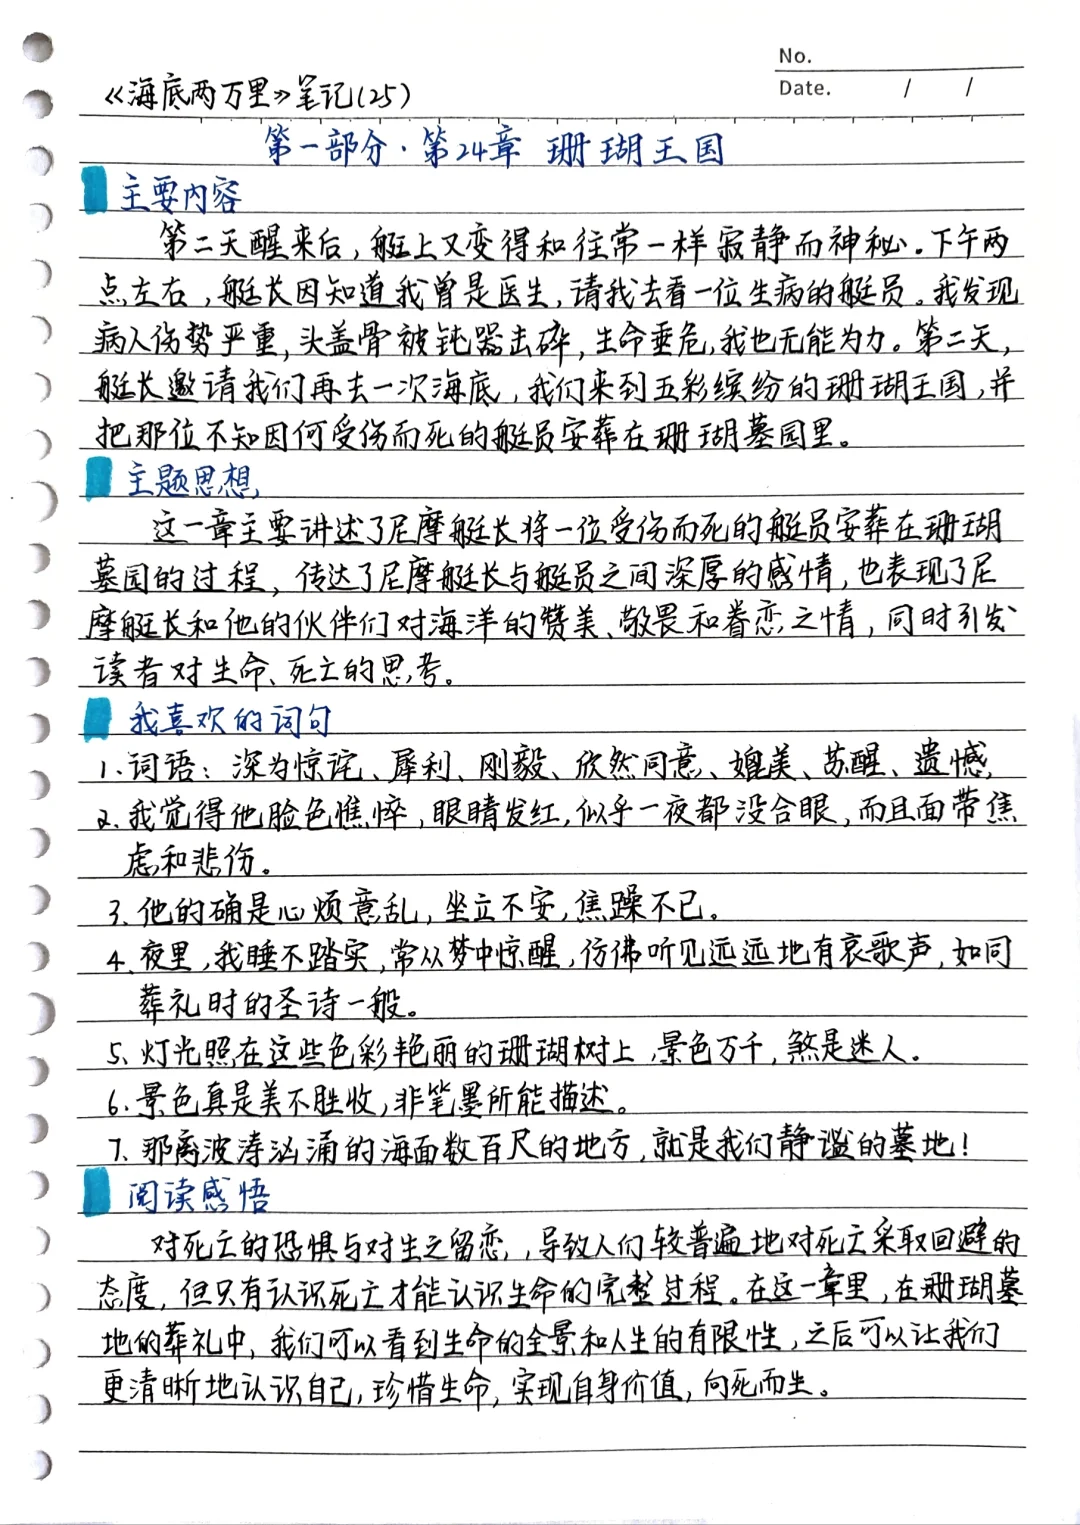 No.
Date. / /
《海底两万里》笔记(25)
第一部分·第24章 珊瑚王国
主要内容
第二天醒来后，艇上又变得和往常一样寂静而神秘。下午两
点左右，艇长因知道我曾是医生，请我去看一位生病的艇员。我发现
病人伤势严重，头盖骨被钝器击碎，生命垂危，我也无能为力。第二天，
艇长邀请我们再去一次海底，我们来到五彩缤纷的珊瑚王国，并
把那位不知因何受伤而死的艇员安葬在珊瑚墓园里。
主题思想
这一章主要讲述了尼摩艇长将一位受伤而死的艇员安葬在珊瑚
墓园的过程，传达了尼摩艇长与艇员之间深厚的感情，也表现了尼
摩艇长和他的伙伴们对海洋的赞美、敬畏和眷恋之情，同时引发
读者对生命、死亡的思考。
我喜欢的词句
1.词语：深为惊诧、犀利、刚毅、欣然同意、媲美、苏醒、遗憾
2.我觉得他脸色憔悴，眼睛发红，似乎一夜都没合眼，而且面带焦
虑和悲伤。
3.他的确是心烦意乱，坐立不安，焦躁不已。
4.夜里，我睡不踏实，常从梦中惊醒，仿佛听见远远地有哀歌声，如同
葬礼时的圣诗一般。
5.灯光照在这些色彩艳丽的珊瑚树上，景色万千，煞是迷人。
6.景色真是美不胜收，非笔墨所能描述。
7.那离波涛汹涌的海面数百尺的地方，就是我们静谧的墓地！
阅读感悟
对死亡的恐惧与对生之留恋，导致人们较普遍地对死亡采取回避的
态度，但只有认识死亡才能认识生命的完整过程。在这一章里，在珊瑚墓
地的葬礼中，我们可以看到生命的全景和人生的有限性，之后可以让我们
更清晰地认识自己，珍惜生命，实现自身价值，向死而生。